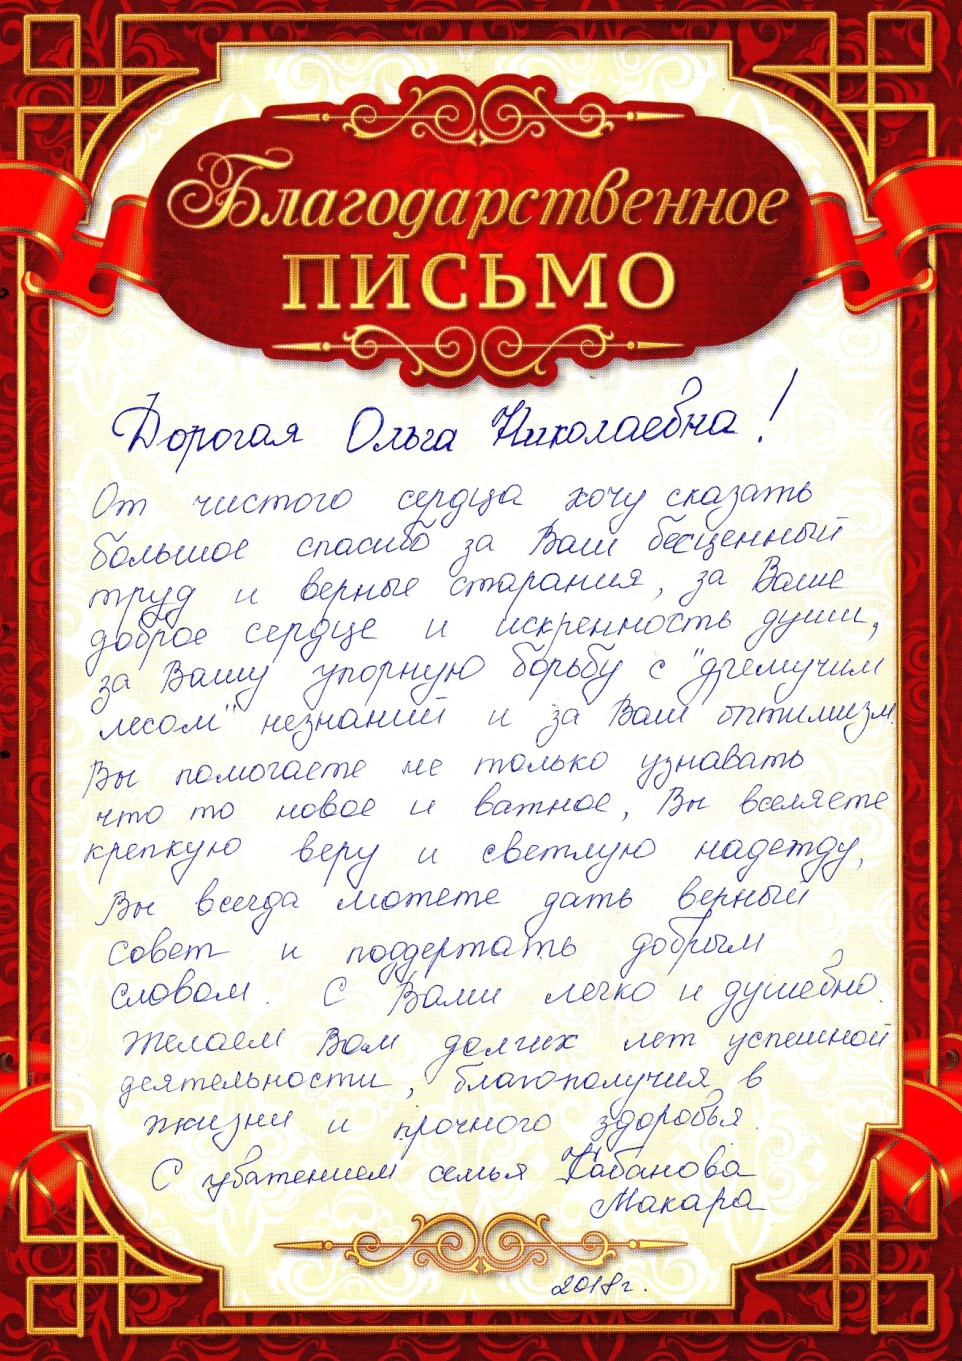 Благодарственное
ПИСЬМО
Дорогая Ольга Николаевна!
От чистого сердца хочу сказать
большое спасибо за Ваш бесценный
труд и верные старания, за Ваше
доброе сердце и искренность души,
за Вашу упорную борьбу с "дремучим
лесом" незнаний и за Ваш оптимизм.
Вы помогаете не только узнавать
что то новое и важное, Вы вселяете
крепкую веру и светлую надежду,
Вы всегда можете дать верный
совет и поддержать добрым
словом. С Вами легко и душевно.
Желаем Вам долгих лет успешной
деятельности, благополучия в
жизни и прочного здоровья.
С уважением семья Кабанова
Макара
2018г.